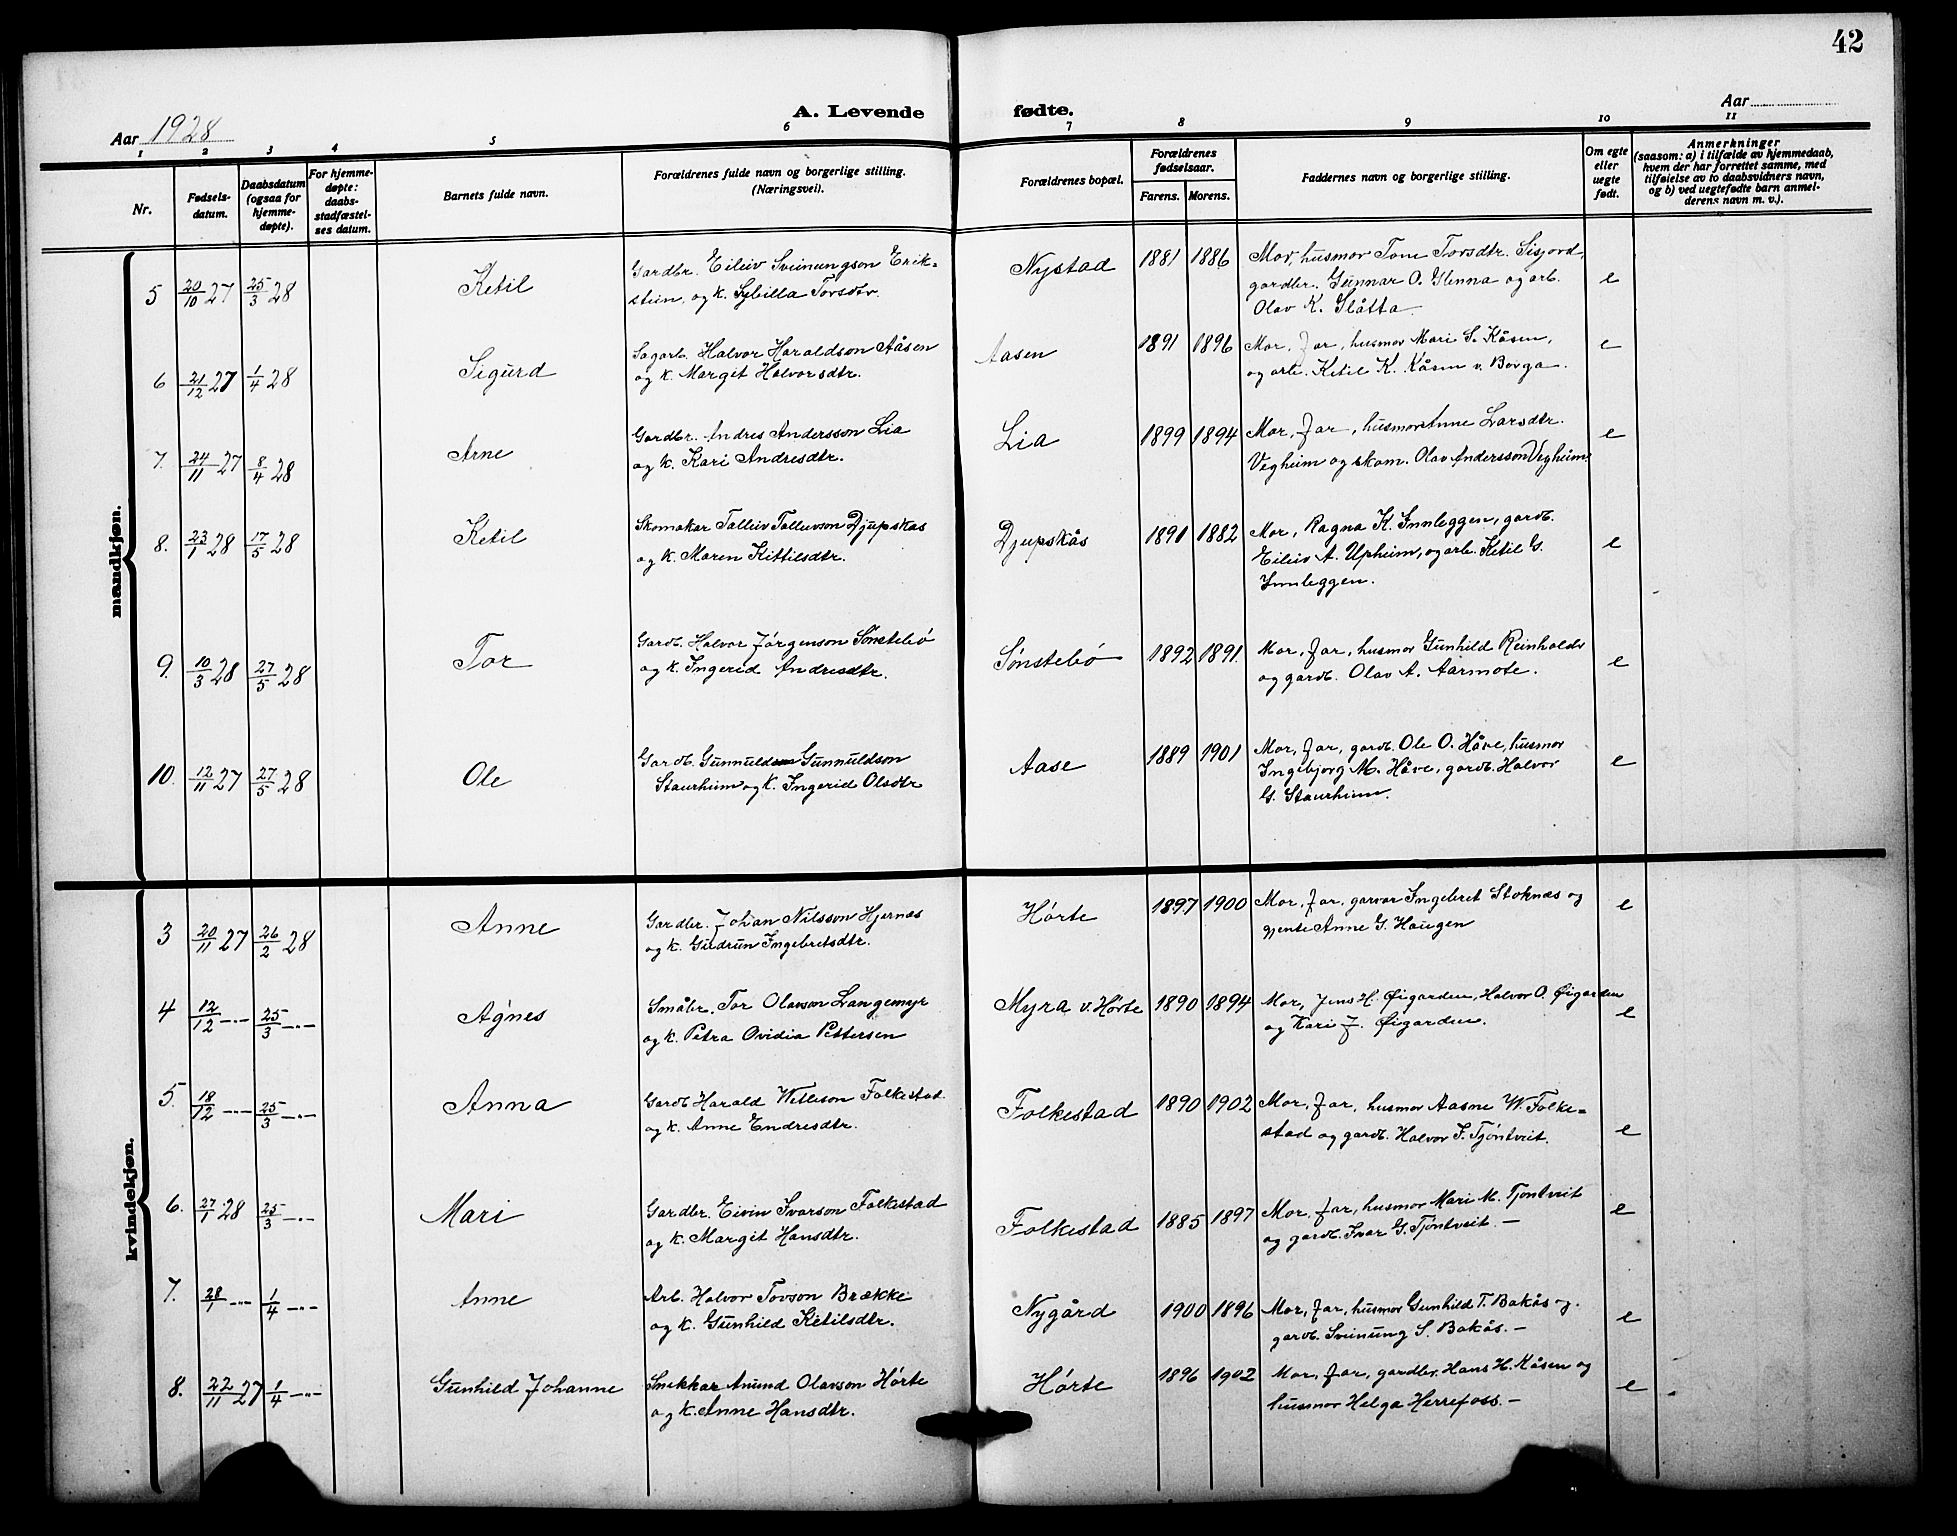 42
A. Levende fødte.
Aar 1928
Aar
1 2 3 4 5 6 7 8 9 10 11
Nr.
Fødsels-
datum.
Daabsdatum
(ogsaa for
hjemme-
døpte).
For hjemme-
døpte:
daabs-
stadfæstel-
ses datum.
Barnets fulde navn.
Forældrenes fulde navn og borgerlige stilling.
(Næringsvei).
Forældrenes bopæl.
Forældrenes
fødselsaar.
Farens. Morens.
Faddernes navn og borgerlige stilling.
Om egte
eller
uegte
født.
Anmerkninger
(saasom: a) i tilfælde av hjemmedaab,
hvem der har forrettet samme, med
tilføielse av to daabsvidners navn,
og b) ved uegtefødte barn anmel-
derens navn m. v.).
mandkjøn.
5 20/10 27 25/3 28 Ketil
Gardbr. Eileiv Sveinungson Erik-
stein, og k. Sybilla Torsdtr.
Nystad 1881 1886
Mor, husmor Tone Torsdtr. Sisjord,
gardbr. Gunnar O. Glenna og arb.
Olav K. Slåtta
e
6 21/12 27 1/4 28 Sigurd
Sagarb. Halvor Haraldson Aåsen
og k. Margit Halvorsdtr.
Aasen 1891 1896
Mor, Far, husmor Mari S. Kåsen,
og arb. Ketil K. Kåsen v. Borga.
e
7. 24/11 27 8/4 28 Arne
Gardbr. Andres Andersson Lia
og k. Kari Andresdtr.
Lia 1899 1894
Mor, Far, husmor Anne Larsdtr.
Vegheim og skom. Olav Andersson Vegheim.
e
8. 23/1 28 17/5 28 Ketil
Skomakar Talleiv Talleivson Djupskas
og k. Maren Kittilsdtr.
Djupskås 1891 1882
Mor, Ragna K. Innleggen, gardb.
Eileiv A. Upheim, og arb. Ketil G.
Innleggen.
e
9. 10/3 28 27/5 28 Tor
Gardb. Halvor Jørgenson Sønstebø
og k. Ingerid Andresdtr.
Sønstebø 1892 1891.
Mor, Far, husmor Gunhild Reinholds
og gardb. Olav A. Aarmote.
e
10. 12/11 27 27/5 28 Ole
Gardb. Gunnuld Gunnuldson
Staurheim og k. Ingerid Olsdtr
Aase 1889 1901
Mor, Far, gardb. Ole O. Håve, husmor
Ingebjorg M. Håve, gardb. Halvor
G. Staurheim.
e
kvindekjøn.
3 20/11 27 26/2 28 Anne
Gardbr. Johan Nilsson Hjernes
og k. Gudrun Ingebretsdtr.
Hørte 1897 1900
Mor, Far, garvar Ingebret Stoknæs og
gjente Anne G. Haugen
e
4 12/12 -"- 25/3 -"- Agnes
Småbr. Tor Olavson Langemyr
og k. Petra Ovidia Pettersen
Myra v. Hørte 1890 1894
Mor, Jens H. Øigarden, Halvor O. Øigarden
og Kari J. Øigarden.
e
5. 18/12 -"- 25/3 -"- Anna
Gardb. Harald Wetleson Folkestad
og k. Anne Endresdtr.
Folkestad 1890 1902
Mor, Far, husmor Aasne W. Folke-
stad og gardb. Halvor F. Tjøntveit.
e
6. 27/1 28 25/3 -"- Mari
Gardbr. Eivin Ivarson Folkestad
og k. Margit Hansdtr.
Folkestad 1885 1897
Mor, Far, husmor Mari M. Tjøntveit
og gardb. Ivar G. Tjøntveit. -
e
7. 28/1 -"- 1/4 -"- Anne
Arb. Halvor Tovson Brække
og k. Gunhild Ketilsdtr.
Nygård 1900 1896
Mor, Far, husmor Gunhild T. Bakås og
gardb. Sveinung S. Bakås. -
e
8. 22/11 27 1/4 -"- Gunhild Johanne
Snikkar Amund Olavson Hørte
og k. Anne Hansdtr.
Hørte 1896 1902
Mor, Far, gardbr. Hans H. Kåsen og
husmor Helga Herrefoss. -
e